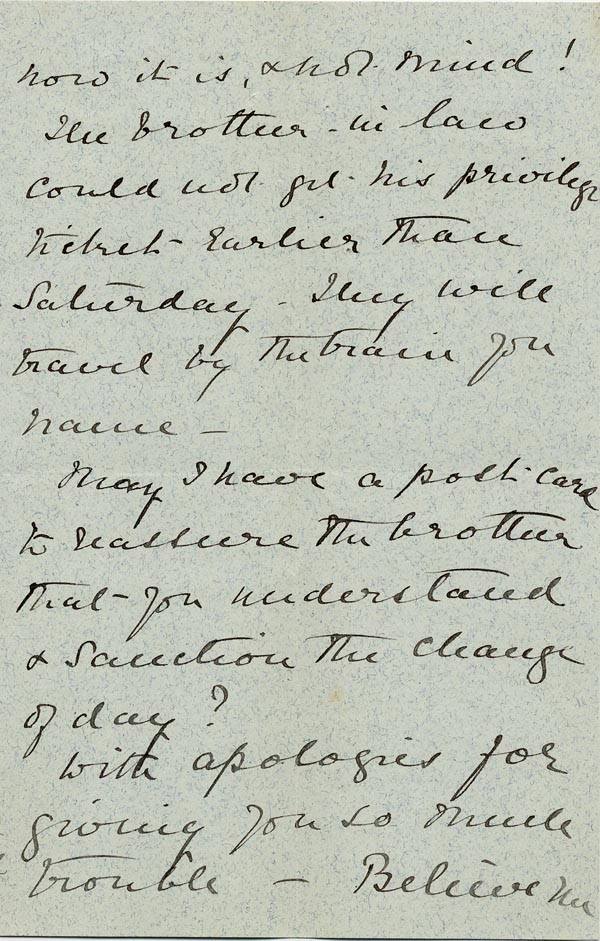 how it is, & not mind!
The brother-in law
could not get his privilege
ticket earlier than
Saturday - They will
travel by the train you
name -
May I have a post-card
to reassure the brother
that you understand
& sanction the change
of day?
With apologies for
giving you so much
trouble - Believe me